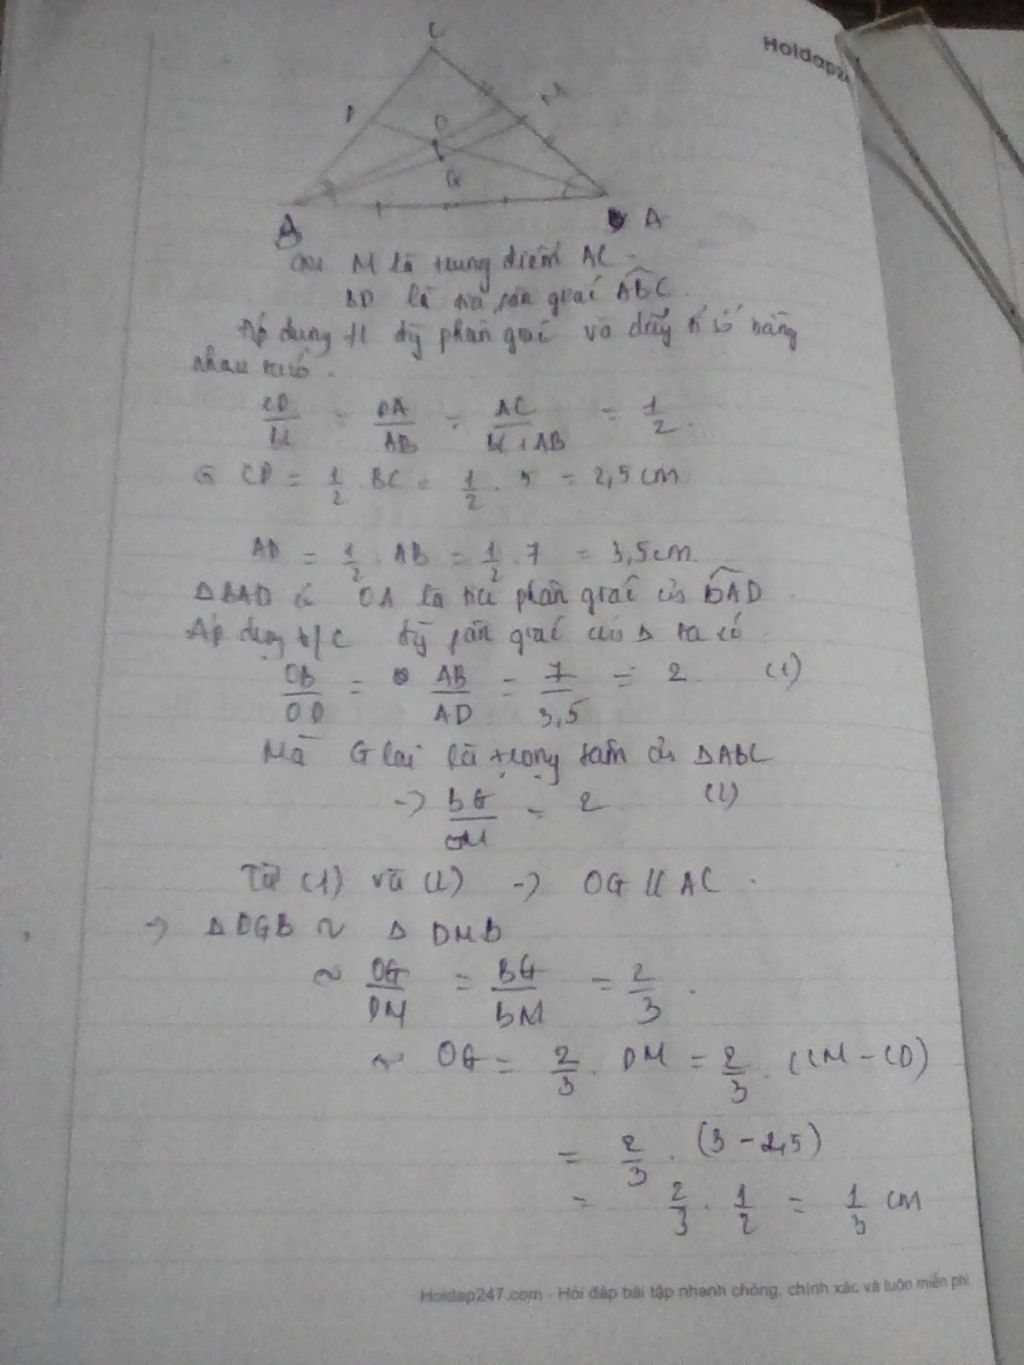 Holdap24
C
M
D
O
G
B
A
Gọi M là trung điểm AC.
BD là tia phân giác ABC.
Áp dụng t/c đg phân giác và dãy tỉ số bằng
nhau ta có.
CD/BC = DA/AB = AC/BC+AB = 1/2.
CD = 1/2 . BC = 1/2 . 5 = 2,5 cm
AD = 1/2 . AB = 1/2 . 7 = 3,5 cm
Δ BAD có OA là tia phân giác của BAD
Áp dụng t/c đg phân giác của Δ ta có
OB/OD = AB/AD = 7/3,5 = 2 (1)
Mà G lại là trọng tâm của ΔABC
-> BG/GM = 2 (2)
Từ (1) và (2) -> OG // AC.
-> Δ OGB ~ Δ DMB
~ OG/DM = BG/BM = 2/3.
~ OG = 2/3 . DM = 2/3 . (CM - CD)
= 2/3 . (3 - 2,5)
= 2/3 . 1/2 = 1/3 cm
Holdap247.com - Hỏi đáp bài tập nhanh chóng, chính xác và luôn miễn phí